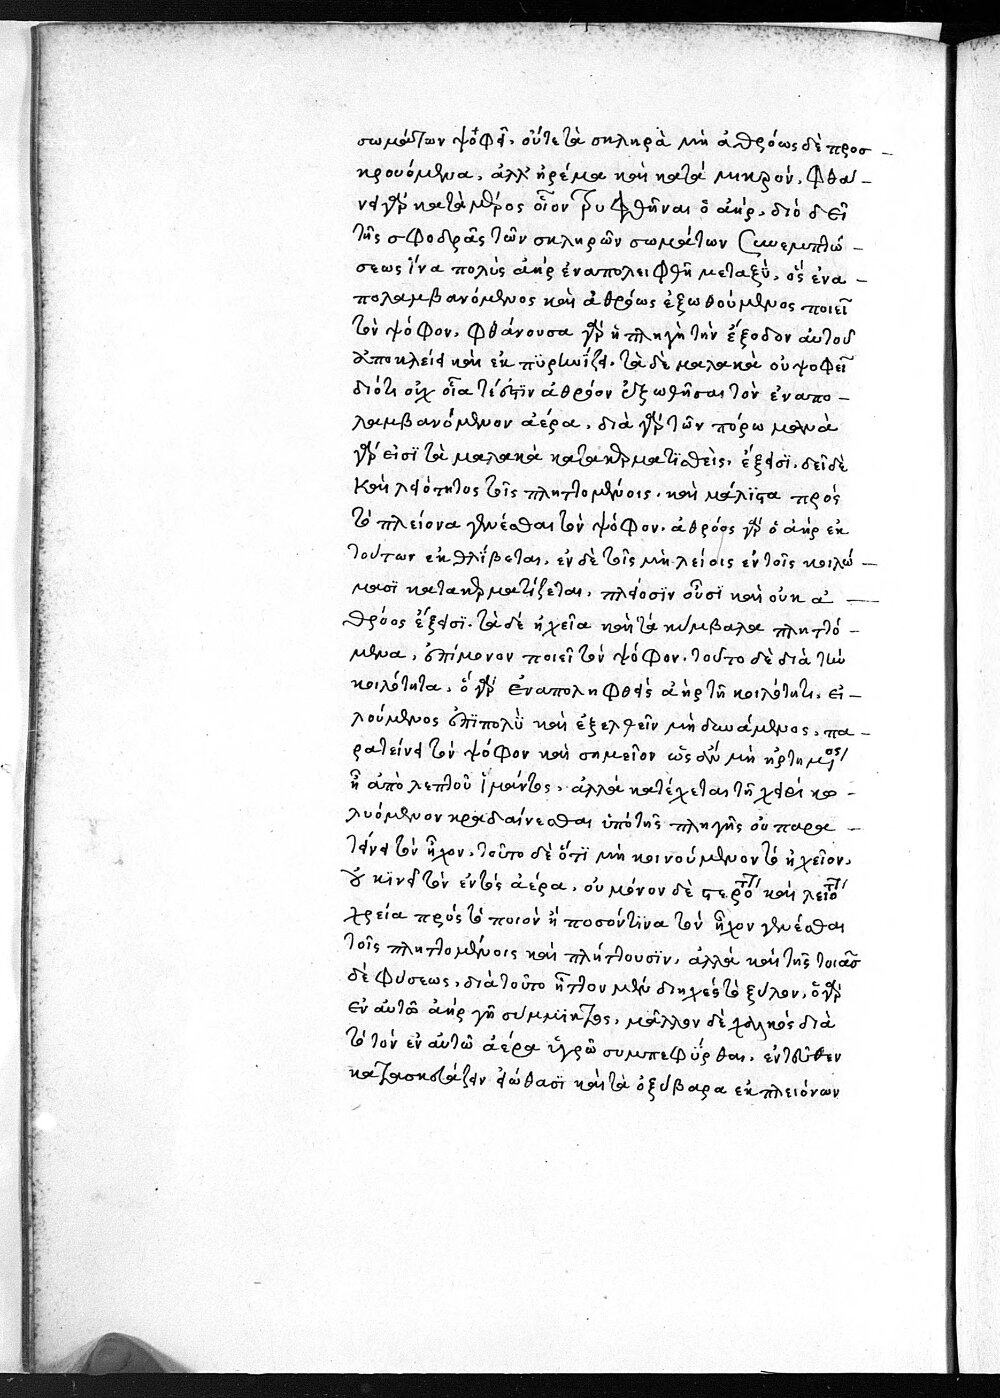 σωμάτων ψόφει, ούτε τὰ σκληρὰ μὴ ἀθρόως δὲ προσ -
κρουόμενα, ἀλλ' ἠρέμα καὶ κατὰ μικρόν. φθά -
νει γὰρ κατὰ μέρος οἷον ῥυφθῆναι ὁ ἀήρ, διὸ δεῖ
τῆς σφοδρᾶς τῶν σκληρῶν σωμάτων συνεμπτώ -
σεως ἵνα πολὺς ἀὴρ ἐναπολειφθῇ μεταξύ, ὃς ἐνα -
πολαμβανόμενος καὶ ἀθρόως ἐξωθούμενος ποιεῖ
τὸν ψόφον. φθάνουσα γὰρ ἡ πληγὴ τὴν ἔξοδον αὐτοῦ
ἀποκλείει καὶ ἐκπϋρηνΐζει. τὰ δὲ μαλακὰ οὐ ψοφεῖ
διότι οὐχ οἷα τέ ἐστϊν ἀθρόον ἐξωθῆσαι τὸν ἐναπο -
λαμβανόμενον ἀέρα, διὰ γὰρ τῶν πόρω μανὰ
γὰρ εἰσϊ τὰ μαλακὰ κατακερματϊσθεὶς, ἔξεισϊ. δεῖ δὲ
καὶ λειότητος τοῖς πληττομένοις. καὶ μάλϊστα πρὸς
τὸ πλείονα γενέσθαι τὸν ψόφον. ἀθρόος γὰρ ὁ ἀὴρ ἐκ
τούτων ἐκθλίβεται, ἐν δὲ τοῖς μὴ λείοις ἐν τοῖς κοιλώ -
μασϊ κατακερματίζεται, πλείοσϊν οὖσϊ καὶ οὐκ ἀ -
θρόος ἔξεισϊ. τὰ δὲ ἠχεῖα καὶ τὰ κύμβαλα πληττό -
μενα, ἐπίμονον ποιεῖ τὸν ψόφον. τοῦτο δὲ διὰ τὴν
κοιλότητα, ὁ γὰρ ἐναποληφθεὶς ἀὴρ τῇ κοιλότητι, εἰ -
λούμενος ἐπϊπολὺ καὶ ἐξελθεῖν μὴ δυνάμενος, πα -
ρατείνει τὸν ψόφον καὶ σημεῖον ὡς ἂν μὴ ἠρτημένος
ἢ ἀπὸ λεπτοῦ ἱμάντος, ἀλλὰ κατέχεται τῇ χειρὶ κω -
λυόμενον κραδαίνεσθαι ὑπὸ τῆς πληγῆς οὐ παρα -
τείνει τὸν ἦχον. τοῦτο δὲ ὅτϊ μὴ κοινούμενον τὸ ἠχεῖον,
οὐ κϊνεῖ τὸν ἐντὸς ἀέρα, οὐ μόνον δὲ στερρότητος καὶ λειότητος
χρεία πρὸς τὸ ποιὸν ἢ ποσόν τϊνα τὸν ἦχον γενέσθαι
τοῖς πληττομένοις καὶ πλήττουσϊν, ἀλλὰ καὶ τῆς τοιᾶσ
δὲ φύσεως, διὰ τοῦτο ἧττον μὲν διηχεῖ τὸ ξύλον, ὁ γὰρ
ἐν αὐτῷ ἀὴρ γῇ σύμμϊκτος, μᾶλλον δὲ χαλκὸς διὰ
τὸ τὸν ἐν αὐτῷ ἀέρα ὑγρῷ συμπεφύρθαι, ἐντεῦθεν
κατασκευάζειν εἰώθασϊ καὶ τὰ ὀξύβαρα ἐκ πλειόνων